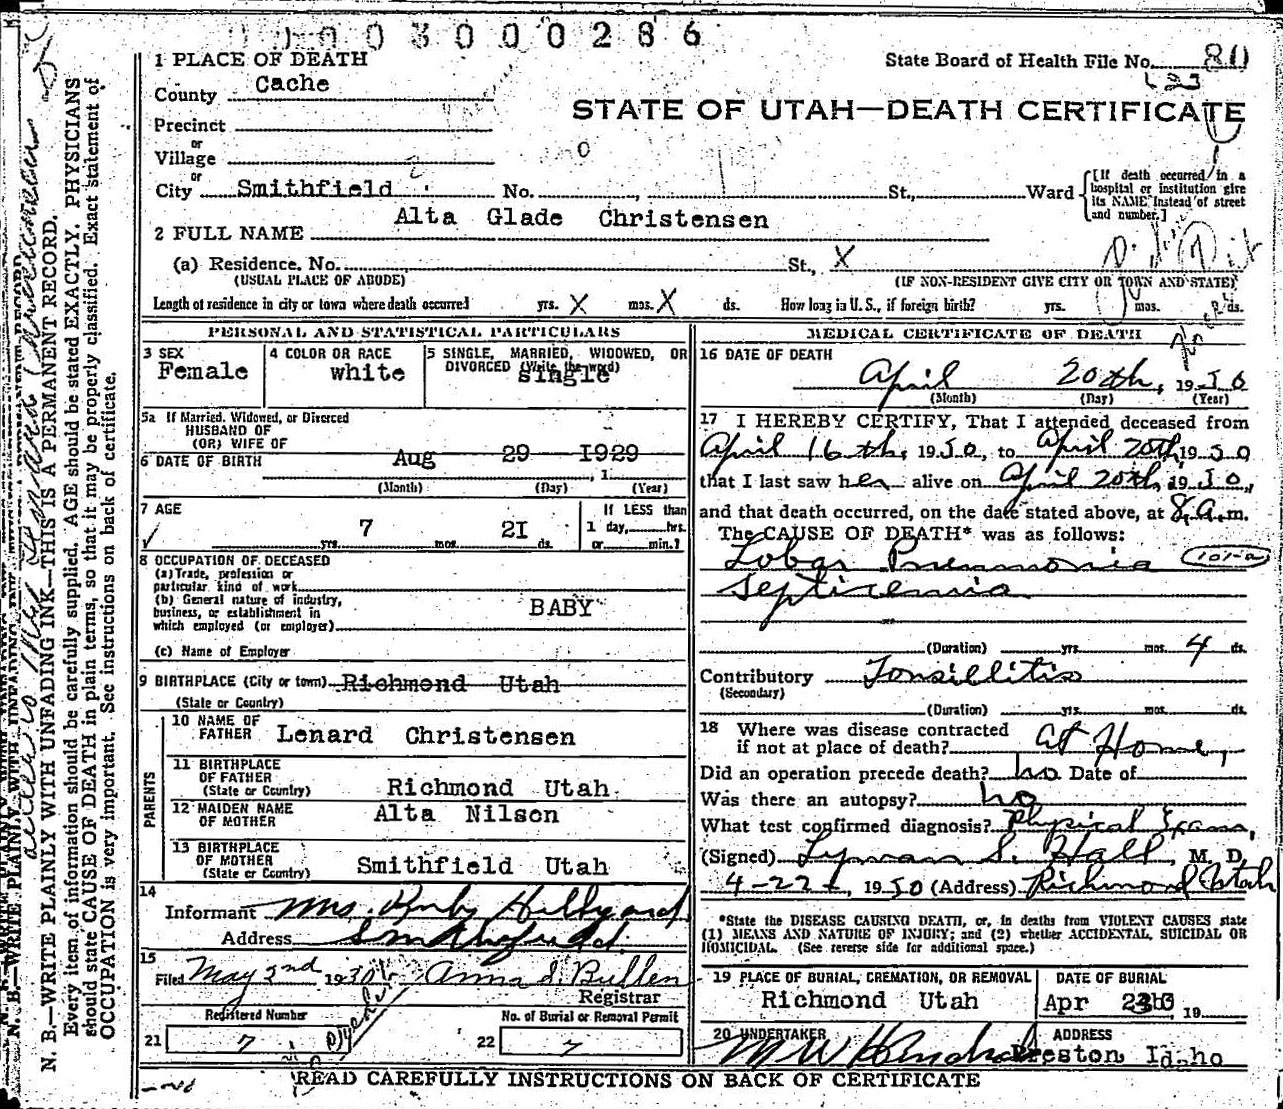 0003000286
1 PLACE OF DEATH
State Board of Health File No. 80
County Cache
STATE OF UTAH—DEATH CERTIFICATE
Precinct
or
Village
or
City Smithfield No. St., Ward
[If death occurred in a hospital or institution give its NAME instead of street and number.]
Alta Glade Christensen
2 FULL NAME
(a) Residence. No. St., X
(USUAL PLACE OF ABODE) (IF NON-RESIDENT GIVE CITY OR TOWN AND STATE)
Length of residence in city or town where death occurred yrs. X mos. X ds. How long in U. S., if foreign birth? yrs. mos. ds.
PERSONAL AND STATISTICAL PARTICULARS
3 SEX
Female
4 COLOR OR RACE
white
5 SINGLE, MARRIED, WIDOWED, OR
DIVORCED (Write the word)
single
5a If Married, Widowed, or Divorced
HUSBAND OF
(OR) WIFE OF
6 DATE OF BIRTH Aug 29 1929
(Month) (Day) , 1 (Year)
7 AGE
yrs. 7 mos. 21 ds.
If LESS than
1 day, hrs.
or min.?
8 OCCUPATION OF DECEASED
(a) Trade, profession or
particular kind of work
(b) General nature of industry,
business, or establishment in
which employed (or employer)
BABY
(c) Name of Employer
9 BIRTHPLACE (City or town) Richmond Utah
(State or Country)
PARENTS
10 NAME OF
FATHER Lenard Christensen
11 BIRTHPLACE
OF FATHER
(State or Country) Richmond Utah
12 MAIDEN NAME
OF MOTHER Alta Nilson
13 BIRTHPLACE
OF MOTHER
(State or Country) Smithfield Utah
14
Informant Mrs. Ruby Hillyard
Address Smithfield.
15
Filed May 2nd 1930 Anna S. Bullen
Registrar
Registered Number
21 7
No. of Burial or Removal Permit
22 7
MEDICAL CERTIFICATE OF DEATH
16 DATE OF DEATH
April 20th, 1930
(Month) (Day) (Year)
17 I HEREBY CERTIFY, That I attended deceased from
April 16th, 1930, to April 20th, 1930
that I last saw her alive on April 20th, 1930,
and that death occurred, on the date stated above, at 8 a.m.
The CAUSE OF DEATH* was as follows:
Lobar Pneumonia 101-a
Septicemia
(Duration) yrs. mos. 4 ds.
Contributory Tonsillitis
(Secondary)
(Duration) yrs. mos. ds.
18 Where was disease contracted
if not at place of death? At Home,
Did an operation precede death? no Date of
Was there an autopsy? no
What test confirmed diagnosis? Physical Exam,
(Signed) Lyman S. Hall, M. D.
4-22, 1930 (Address) Richmond Utah
*State the DISEASE CAUSING DEATH, or, in deaths from VIOLENT CAUSES state
(1) MEANS AND NATURE OF INJURY; and (2) whether ACCIDENTAL, SUICIDAL OR
HOMICIDAL. (See reverse side for additional space.)
19 PLACE OF BURIAL, CREMATION, OR REMOVAL
Richmond Utah
DATE OF BURIAL
Apr , 19
20 UNDERTAKER
ADDRESS
Preston, Idaho
READ CAREFULLY INSTRUCTIONS ON BACK OF CERTIFICATE
N. B.—WRITE PLAINLY WITH UNFADING INK—THIS IS A PERMANENT RECORD.
Every item of information should be carefully supplied. AGE should be stated EXACTLY. PHYSICIANS
should state CAUSE OF DEATH in plain terms, so that it may be properly classified. Exact statement of
OCCUPATION is very important. See instructions on back of certificate.